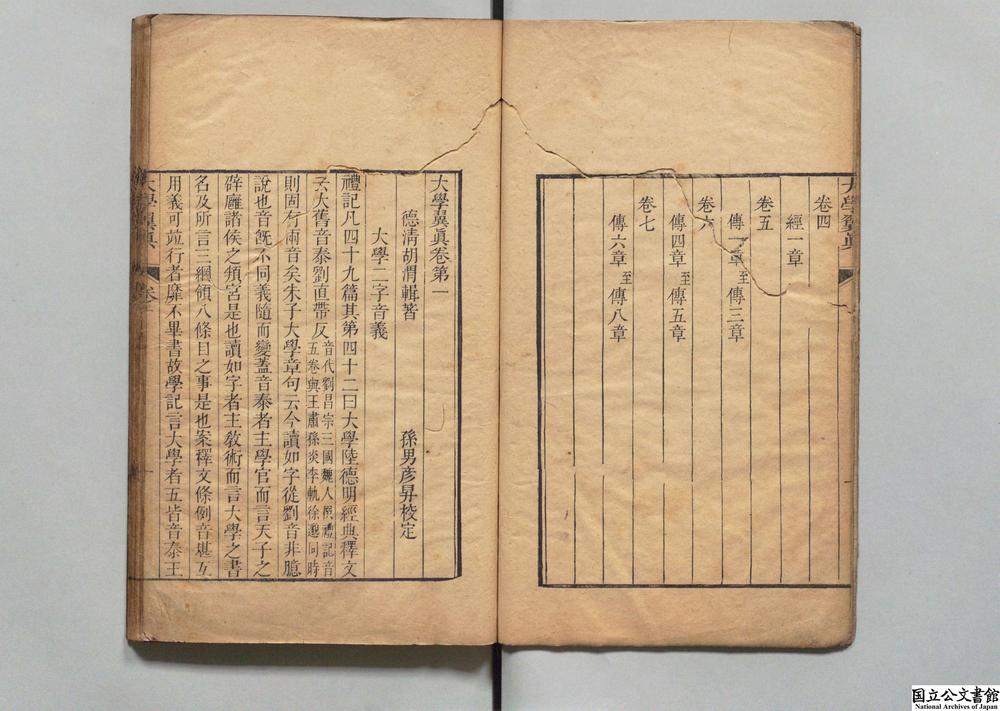 大學翼真
卷四
經一章
卷五
傳一章至傳三章
卷六
傳四章至傳五章
卷七
傳六章至傳八章
大學翼眞卷第一
德淸胡渭輯著 孫男彥昇校定
大學二字音義
禮記凡四十九篇其第四十二曰大學陸德明經典釋文
云大舊音泰劉直帶反音代劉昌宗三國魏人撰禮記音
五卷與王肅孫炎李軌徐邈同時
則固有兩音矣朱子大學章句云今讀如字從劉音非臆
說也音旣不同義隨而變蓋音泰者主學官而言天子之
辟廱諸侯之頖宮是也讀如字者主敎術而言大學之書
名及所言三綱領八條目之事是也案釋文條例音堪互
用義可並行者靡不畢書故學記言大學者五皆音泰王
大學翼眞
卷一
国立公文書館
National Archives of Japan